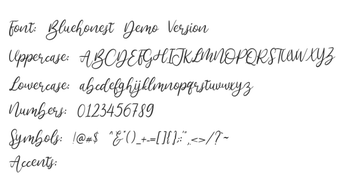 Font: Bluehonest Demo Version
Uppercase: ABCDEFGHIJKLMNOPQRSTUVWXYZ
Lowercase: abcdefghijklmnopqrstuvwxyz
Numbers: 0123456789
Symbols: !@#$ ^&*()_+-=[][];:",.<>/?~
Accents: